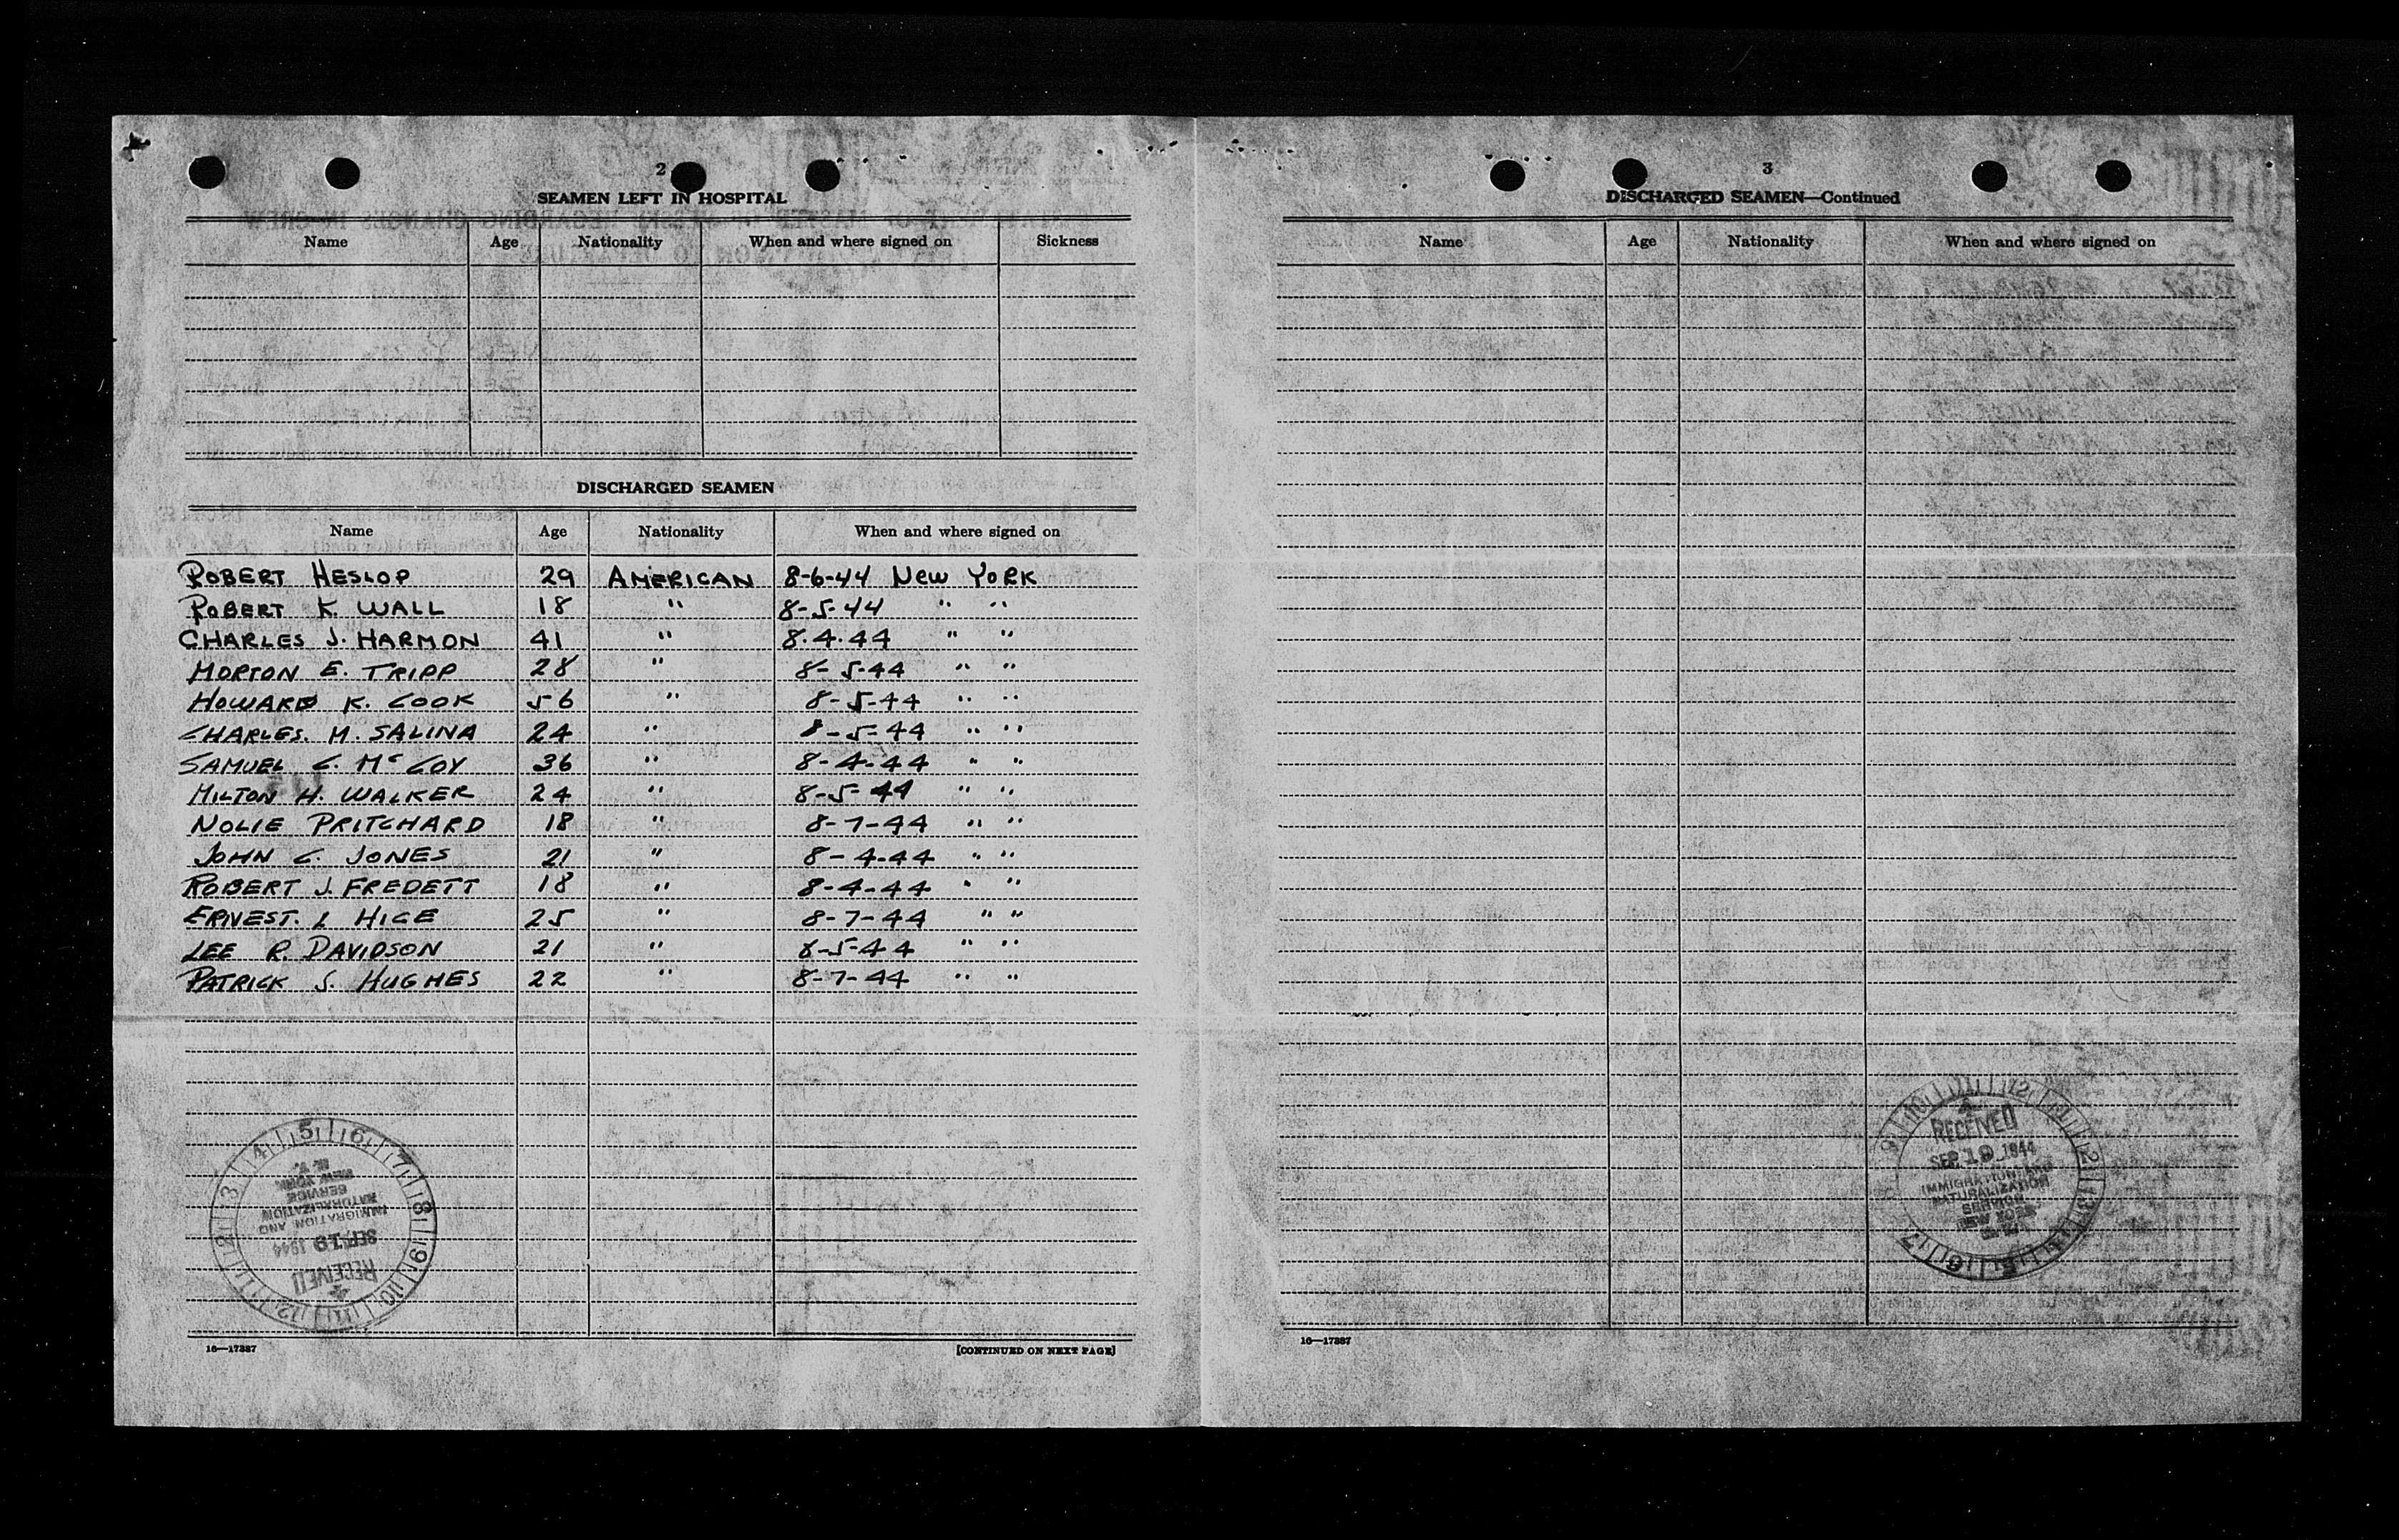 2
SEAMEN LEFT IN HOSPITAL
Name Age Nationality When and where signed on Sickness
DISCHARGED SEAMEN
Name Age Nationality When and where signed on
ROBERT HESLOP 29 AMERICAN 8-6-44 NEW YORK
ROBERT K. WALL 18 " 8-5-44 " "
CHARLES J. HARMON 41 " 8.4.44 " "
MORTON E. TRIPP 28 " 8-5-44 " "
HOWARD K. COOK 56 " 8-5-44 " "
CHARLES. M. SALINA 24 " 8-5-44 " "
SAMUEL C. McCOY 36 " 8-4-44 " "
MILTON H. WALKER 24 " 8-5-44 " "
NOLIE PRITCHARD 18 " 8-7-44 " "
JOHN C. JONES 21 " 8-4-44 " "
ROBERT J. FREDETT 18 " 8-4-44 " "
ERNEST. L HICE 25 " 8-7-44 " "
LEE R. DAVIDSON 21 " 8-5-44 " "
PATRICK S. HUGHES 22 " 8-7-44 " "
RECEIVED
SEP 19 1944
IMMIGRATION AND
NATURALIZATION
SERVICE
NEW YORK
N. Y.
16—17387 [CONTINUED ON NEXT PAGE]
3
DISCHARGED SEAMEN—Continued
Name Age Nationality When and where signed on
RECEIVED
SEP 19 1944
IMMIGRATION AND
NATURALIZATION
SERVICE
NEW YORK
N. Y.
16—17387